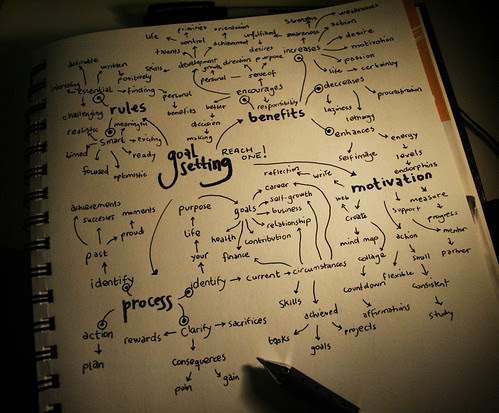 goal
setting
REACH
ONE!
rules
essential
desirable
written
positively
finding
skills
challenging
meaningful
smart
exciting
ready
optimistic
focused
timed
realistic
benefits
encourages
personal
benefits
better
decision
making
responsibility
sense of
purpose
direction
desires
unfulfilled
personal
growth
achievement
orientation
development
talents
control
priorities
life
increases
awareness
strengths
weaknesses
action
desire
motivation
passion
life
certainty
decreases
procrastination
laziness
lethargy
enhances
self image
energy
levels
endorphins
motivation
write
web
create
mind map
collage
countdown
action
flexible
affirmations
support
small
consistent
study
measure
progress
mentor
partner
process
identify
past
achievements
successes
moments
proud
identify
your
life
purpose
goals
reflection
career
self-growth
business
relationship
contribution
health
finance
current
circumstances
skills
achieved
tasks
goals
projects
clarify
rewards
sacrifices
consequences
pain
gain
action
plan